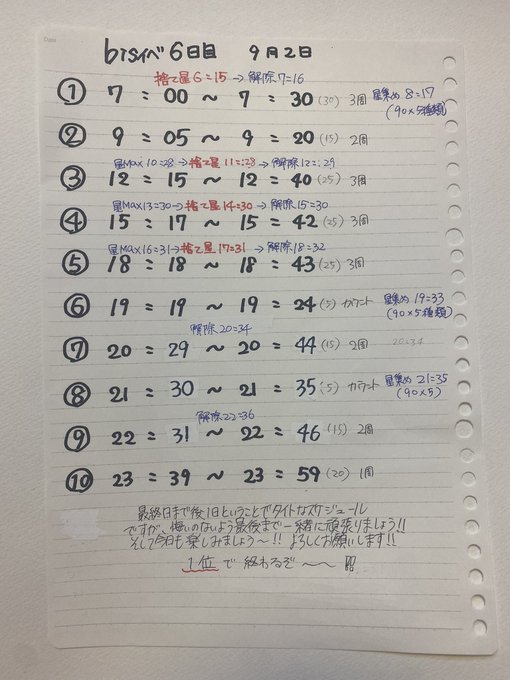 bisイベ 6日目 9月2日
捨て星6=15→解除7=16
① 7:00~7:30(30) 3周 星集め 8=17
(90×5種類)
② 9:05~9:20(15) 2周
星MAX10=28→捨て星11=28→解除12=29
③ 12:15~12:40(25) 3周
星MAX13=30→捨て星14=30→解除15=30
④ 15:17~15:42(25) 3周
星MAX16=31→捨て星17=31→解除18=32
⑤ 18:18~18:43(25) 3周
⑥ 19:19~19:24(5) カウント 星集め 19=33
(90×5種類)
解除20=34
⑦ 20:29~20:44(15) 2周 20=34
⑧ 21:30~21:35(5) カウント 星集め 21=35
(90×5)
解除22=36
⑨ 22:31~22:46(15) 2周
⑩ 23:39~23:59(20) 1周
最終日まで後1日ということでタイトなスケジュール
ですが、悔いのないよう最後まで一緒に頑張りましょう!!
そして今日も楽しみましょう~!! よろしくお願いします!!
1位で終わるぞ~~